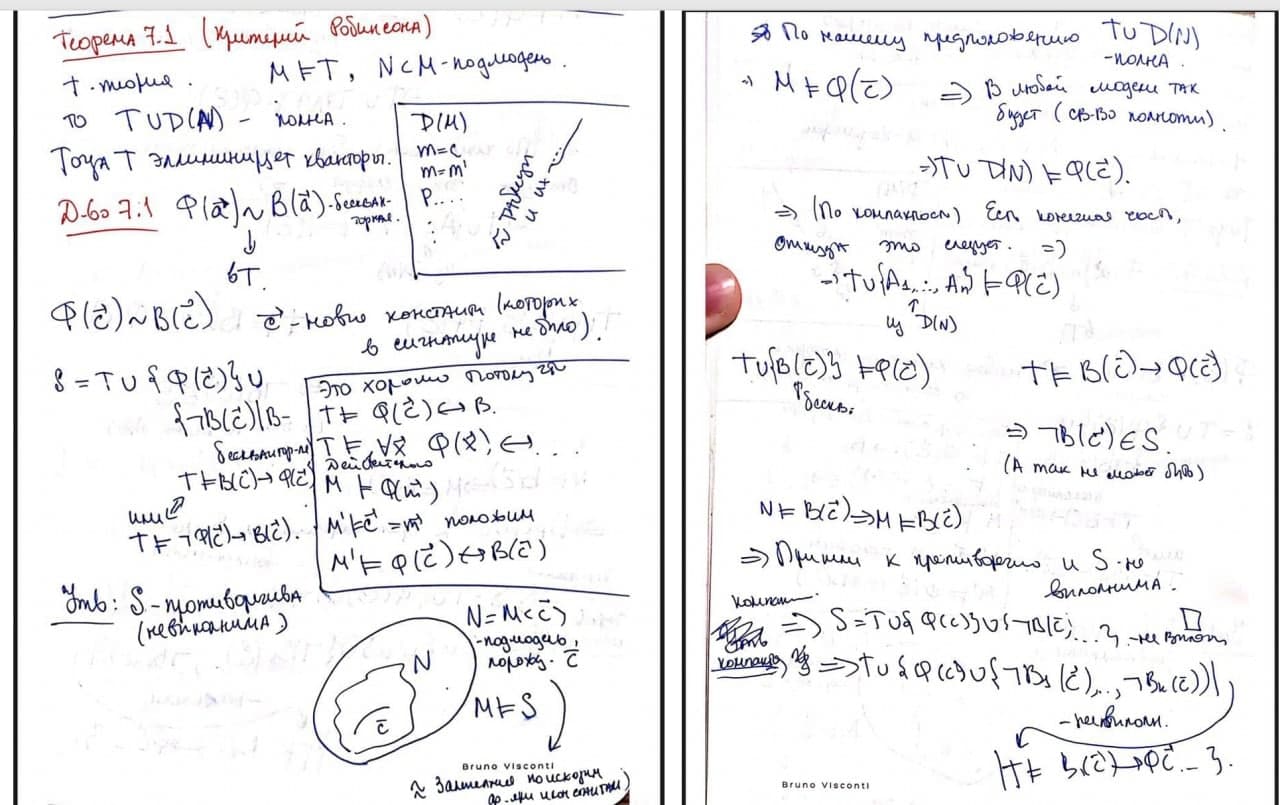 Теорема 7.1 (Критерий Робинсона)
T - теория. M ⊨ T, N ⊂ M - подмодель.
то T ∪ D(N) - полна.
Тогда T элиминирует кванторы.
D(M)
m = c
m = m'
P....
Д-во 7.1 Φ(a⃗) ~ B(a⃗) - бесквак-
торная.
↓
в T.
Φ(c⃗) ~ B(c⃗) c⃗ - новые константы (которых
в сигнатуре не было).
S = T ∪ {Φ(c⃗)} ∪
{¬B(c⃗) | B -
T ⊨ B(c⃗) → Φ(c⃗)
или
T ⊨ ¬Φ(c⃗) → B(c⃗).
Это хорошо потому что
T ⊨ Φ(c⃗) ↔ B.
T ⊨ ∀x⃗ Φ(x⃗) ↔ ...
Действительно
M ⊨ Φ(m⃗)
M' ⊨ c⃗ = m⃗ положим
M' ⊨ Φ(c⃗) ↔ B(c⃗)
Утв: S - противоречива
(невыполнима)
N = M<c⃗>
- подмодель,
порожд. c̄
N
c̄
M ⊨ S
Bruno Visconti
По нашему предположению T ∪ D(N)
- полна.
⇒ M ⊨ Φ(c̄) ⇒ В любой модели так
будет (св-во полноты).
⇒ T ∪ D(N) ⊨ Φ(c⃗).
⇒ (По компактности) Есть конечная часть,
откуда это следует. ⇒
⇒ T ∪ {A₁, ..., Aₙ} ⊨ Φ(c⃗)
↑
из D(N)
T ∪ {B(c̄)} ⊨ Φ(c⃗) T ⊨ B(c̄) → Φ(c⃗)
↑
бескв.
⇒ ¬B(c⃗) ∈ S
(А так не может быть)
N ⊨ B(c⃗) ⇒ M ⊨ B(c⃗)
⇒ Пришли к противоречию и S - не
выполнима.
□
компакт.
⇒ S = T ∪ {Φ(c)} ∪ {¬B(c̄) ...} - не выполн.
⇒ T ∪ {Φ(c)} ∪ {¬B₁(c⃗), ..., ¬Bₖ(c⃗)) |
- невыполн.
| T ⊨ B(c⃗) → Φc⃗ ... }.
Bruno Visconti